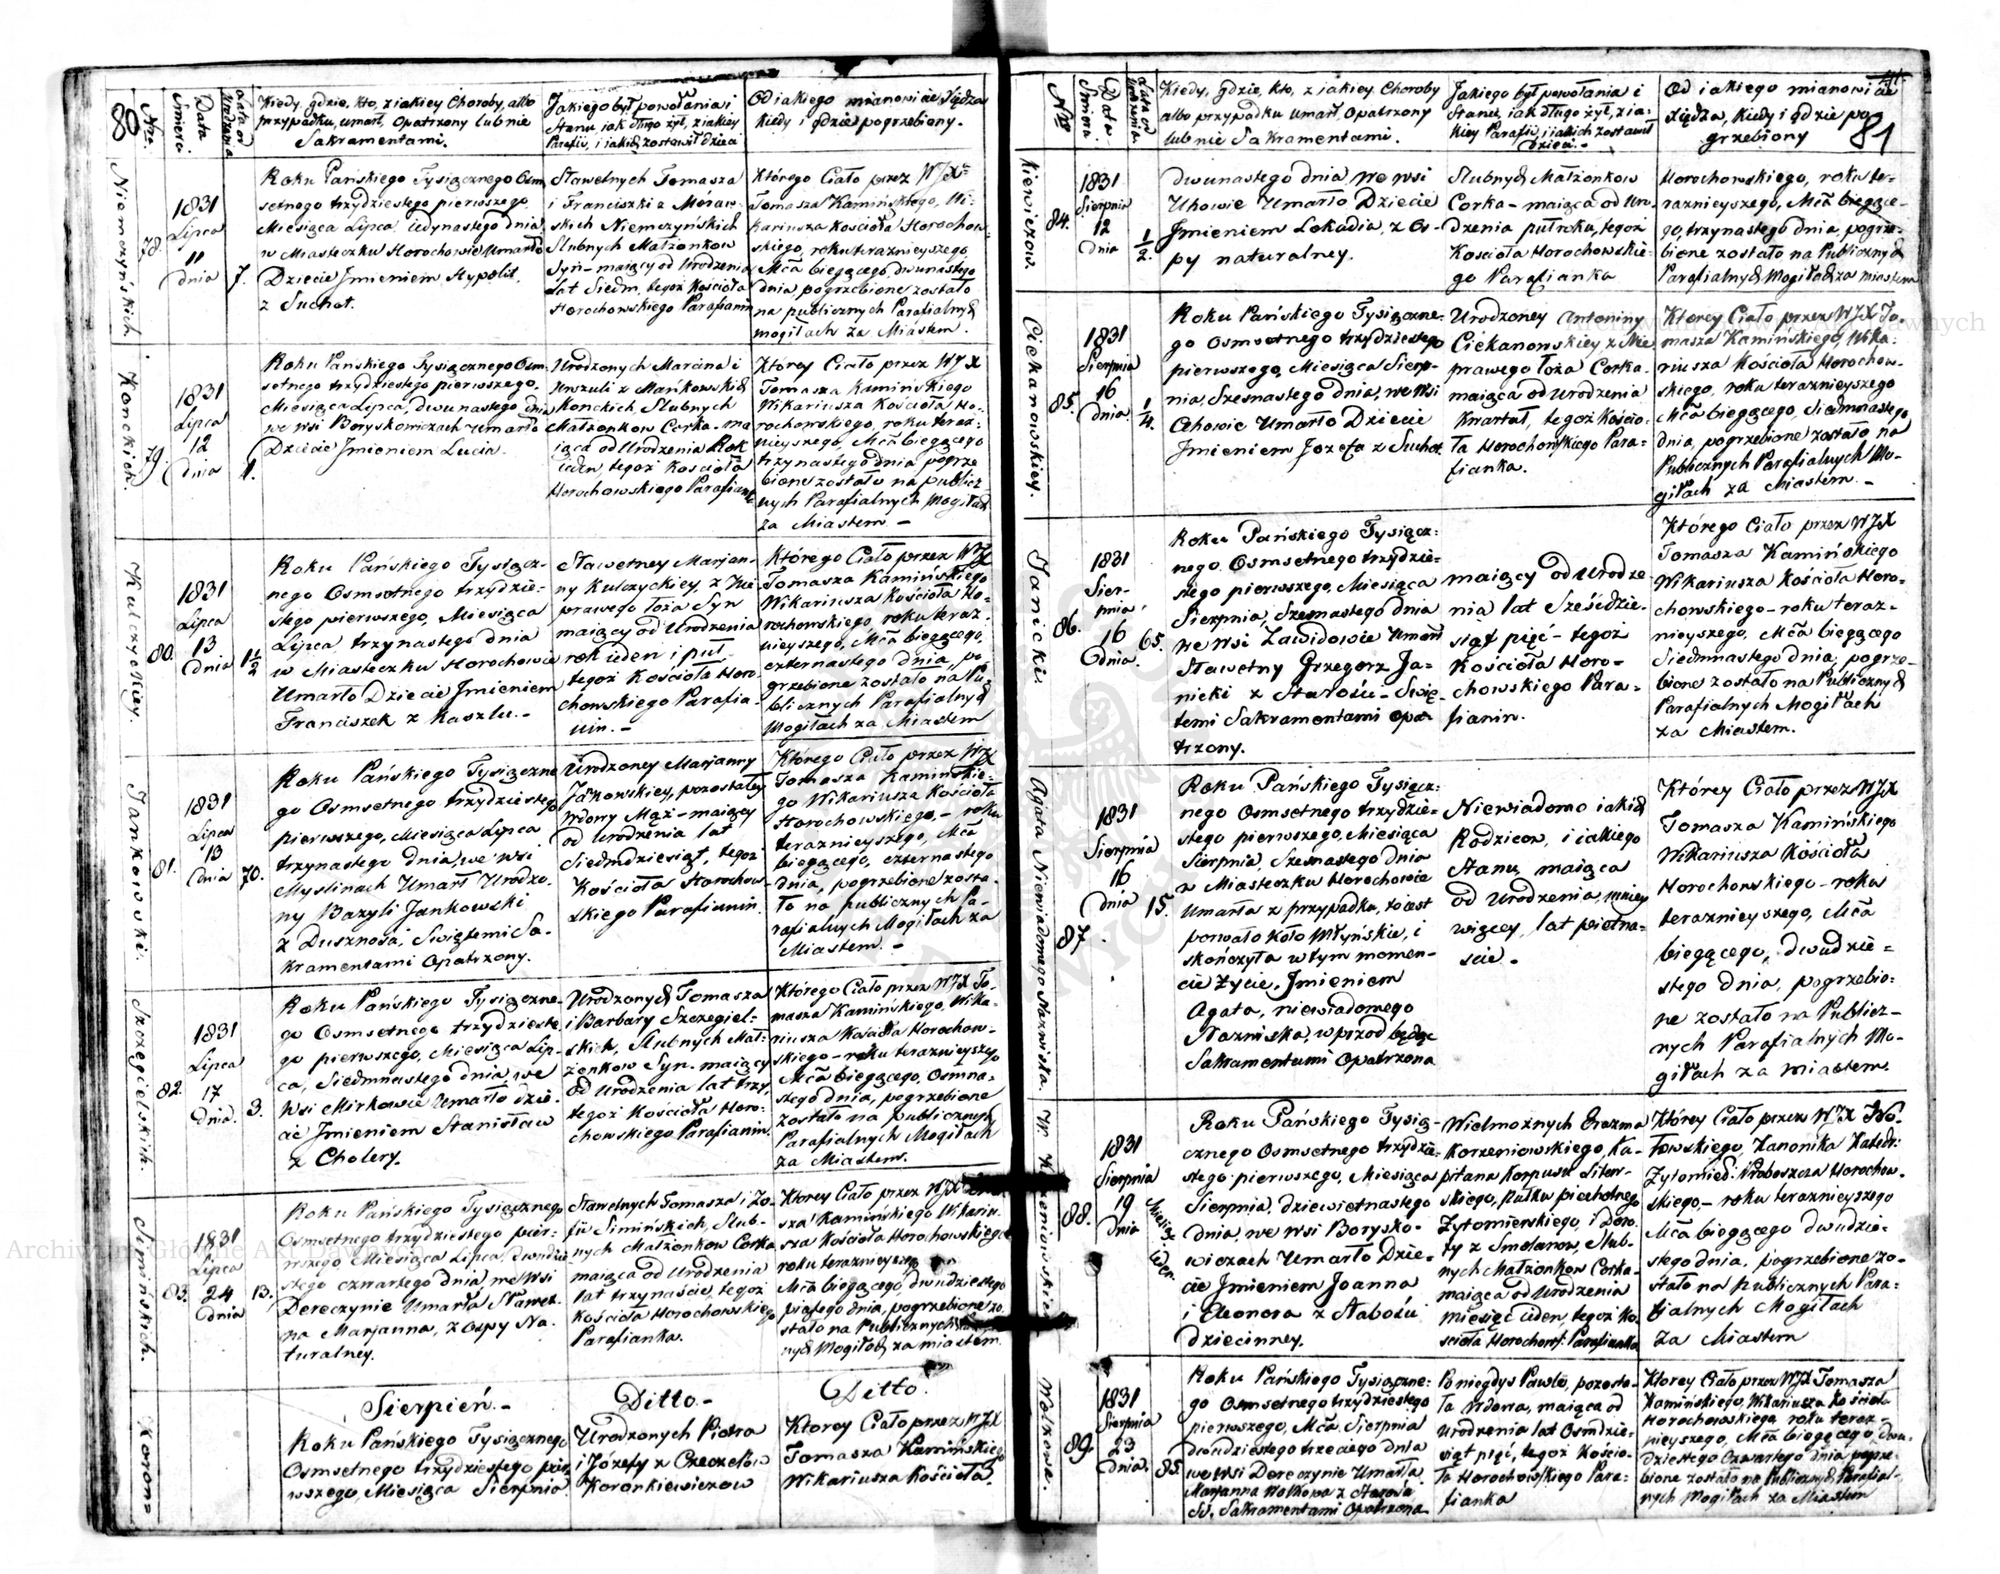 80
Nro.
Data Smierci
Lata od Urodzenia
Kiedy, gdzie, kto, z jakiey Choroby, albo
przypadku, umarł, Opatrzony lub nie
Sakramentami.
Jakiego był powołania i
Stanu, jak długo żył, z jakiey
Parafii, i jakich zostawił dzieci
Od jakiego mianowicie Xiędza
kiedy i gdzie pogrzebiony.
Niemczyńskich
78.
1831
Lipca
11
dnia
7.
Roku Pańskiego Tysiącznego Osm
setnego trzydziestego pierwszego,
Miesiąca Lipca, Jedynastego dnia
w Miasteczku Horochowie Umarło
Dziecie Jmieniem Hypolit,
z Suchot.
Sławetnych Tomasza
i Franciszki z Moraw-
skich Niemczyńskich
Slubnych Małżonkow
Syn – maiący od Urodzenia
lat Siedm, tegoż Kościoła
Horochowskiego Parafianin
Którego Ciało przez WJX
Tomasza Kamińskiego, Wi-
kariusza Kościoła Horochow-
skiego, roku teraznieyszego,
Mca biegącego, dwunastego
dnia, pogrzebione zostało
na publicznych Parafialnych
mogiłach za Miastem.
Konckich.
79.
1831
Lipca
12
dnia
1.
Roku Pańskiego Tysiącznego Osm
setnego trzydziestego pierwszego,
Miesiąca Lipca, dwunastego dnia
we wsi Boryskowiczach umarło
Dziecie Jmieniem Lucia.
Urodzonych Marcina i
Urszuli z Mańkowskich
Konckich, Slubnych
Małżonkow Corka – ma
iąca od Urodzenia Rok
ieden tegoż Kościoła
Horochowskiego Parafianka
Którey Ciało przez WJX
Tomasza Kamińskiego
Wikariusza Kościoła Ho-
rochowskiego, roku teraz-
nieyszego, Mca biegącego
trzynastego dnia pogrze
bione zostało na publicz
nych Parafialnych Mogiłach
za Miastem –
Kulczyckiey.
80.
1831
Lipca
13
dnia
1 1/2
Roku Pańskiego Tysiącz-
nego Osmsetnego trzydzie-
stego pierwszego, Miesiąca
Lipca trzynastego dnia
w Miasteczku Horochowie
Umarło Dziecie Jmieniem
Franciszek z Kaszlu. –
Sławetney Marjan-
ny Kulczyckiey, z Nie
prawego łoża Syn
maiący od Urodzenia
rok ieden i puł
tegoż Kościoła Horo
chowskiego Parafia-
nin. –
Którego Ciało przez WJX
Tomasza Kamińskiego
Wikariusza Kościoła Ho-
rochowskiego, roku teraz-
nieyszego, Mca biegącego,
czternastego dnia, po-
grzebione zostało na Pu-
blicznych Parafialnych
Mogiłach za Miastem
Jankowski.
81.
1831
Lipca
13
dnia
70.
Roku Pańskiego Tysiączne
go Osmsetnego trzydziestego
pierwszego, Miesiąca Lipca
trzynastego dnia, we wsi
Myslinach Umarł Urodzo-
ny Bazyli Jankowski
z Duszności, Swiętemi Sa-
kramentami Opatrzony.
Urodzoney Marjanny
Jankowskiey, pozostałey
Wdowy Mąż – maiący
od Urodzenia lat
Siedmdziesiąt, tegoż
Kościoła Horochow-
skiego Parafianin.
Którego Ciało przez WJX
Tomasza Kamińskie-
go Wikariusza Kościoła
Horochowskiego, – roku
teraznieyszego, Mca
biegącego, czternastego
dnia, pogrzebione zosta-
ło na publicznych Pa-
rafialnych Mogiłach za
Miastem. –
Szczegielskich.
82.
1831
Lipca
17
dnia.
3.
Roku Pańskiego Tysiączne-
go Osmsetnego trzydzieste
go pierwszego, Miesiąca Lip-
ca, Siedmnastego dnia, we
wsi Mirkowie Umarło dzie-
cie Jmieniem Stanisław
z Cholery.
Urodzonych Tomasza
i Barbary Szczegiel-
skich, Slubnych Mał-
żonkow Syn – maiący
od Urodzenia lat trzy,
tegoż Kościoła Horo-
chowskiego Parafianin.
Którego Ciało przez WJX To-
masza Kamińskiego, Wika-
riusza Kościoła Horochow-
skiego – roku teraznieyszego
Mca biegącego, Osmna-
stego dnia, pogrzebione
zostało na publicznych
Parafialnych Mogiłach
za Miastem.
Simińskich.
83.
1831
Lipca
24
dnia
13.
Roku Pańskiego Tysiącznego
Osmsetnego trzydziestego pier-
wszego, Miesiąca Lipca, dwudzie
stego czwartego dnia, we wsi
Dereczynie Umarła Sławet-
na Marjanna, z Ospy Na-
turalney.
Sławetnych Tomasza i Zo-
fii Simińskich, Slub-
nych Małżonkow Corka
maiąca od Urodzenia
lat trzynaście, tegoż
Kościoła Horochowskiego
Parafianka.
Którey Ciało przez WJX Toma
sza Kamińskiego Wikariu-
sza Kościoła Horochowskiego
roku teraznieyszego
Mca biegącego, dwudziestego
piątego dnia, pogrzebione zo-
stało na Publicznych
nych Mogiłach za miastem.
Sierpień. –
Ditto –
Ditto.
Korono
Roku Pańskiego Tysiącznego
Osmsetnego trzydziestego pier
wszego, Miesiąca Sierpnia
Urodzonych Piotra
i Józefy z Czeczelów
Koronkiewiczow
Którey Ciało przez WJX
Tomasza Kamińskiego
Wikariusza Kościoła
81
Nro
Data Smierci
Lata od Urodzenia
Kiedy, gdzie, kto, z jakiey Choroby
albo przypadku Umarł, Opatrzony
lub nie Sakramentami.
Jakiego był powołania i
Stanu, jak długo żył, z ia-
kiey Parafii, i jakich zostawił
Dzieci –
Od jakiego mianowicie
Xiędza, kiedy i gdzie po-
grzebiony
kiewiczow.
84.
1831
Sierpnia
12
dnia
1/2.
dwunastego dnia, we wsi
Uhowie Umarło Dziecie
Jmieniem Lokadia, z Os-
py naturalney.
Slubnych Małżonkow
Corka – maiąca od Uro-
dzenia pułroku, tegoż
Kościoła Horochowskie-
go Parafianka
Horochowskiego, roku te-
raznieyszego, Mca biegące-
go, trzynastego dnia, pogrze-
bione zostało na Publicznych
Parafialnych Mogiłach za miastem
Ciekanowskiey.
85.
1831
Sierpnia
16
dnia.
1/4.
Roku Pańskiego Tysiączne-
go Osmsetnego trzydziestego
pierwszego, Miesiąca Sierp-
nia, Szesnastego dnia, we wsi
Cehowie Umarło Dziecie
Jmieniem Jozefa z Suchot
Urodzoney Antoniny
Ciekanowskiey z Nie
prawego łoża Corka –
maiąca od Urodzenia
Kwartał, tegoż Kościo-
ła Horochowskiego Para-
fianka.
Którey Ciało przez WJX To-
masza Kamińskiego, Wika-
riusza Kościoła Horochow-
skiego, roku teraznieyszego
Mca biegącego, Siedmnastego
dnia, pogrzebione zostało na
Publicznych Parafialnych Mo-
giłach za Miastem. –
Janicki
86.
1831
Sier-
pnia,
16
dnia.
65.
Roku Pańskiego Tysiącz-
nego Osmsetnego trzydzie-
stego pierwszego, Miesiąca
Sierpnia, Szesnastego dnia
we wsi Zawidowie Umarł
Sławetny Grzegorz Ja-
nicki z Starości – Swię-
temi Sakramentami Opa-
trzony.
maiący od Urodze
nia lat Sześćdzie-
siąt pięć – tegoż
Kościoła Horo-
chowskiego Para-
fianin.
Którego Ciało przez WJX
Tomasza Kamińskiego
Wikariusza Kościoła Horo-
chowskiego – roku teraz-
nieyszego, Mca biegącego
Siedmnastego dnia, pogrze-
bione zostało na Publicznych
Parafialnych Mogiłach
za Miastem.
Agata Niewiadomego Nazwiska.
87.
1831
Sierpnia
16
dnia
15.
Roku Pańskiego Tysiącz-
nego Osmsetnego trzydzie-
stego pierwszego, Miesiąca
Sierpnia, Szesnastego dnia
w Miasteczku Horochowie
Umarła z przypadku, to iest
porwało Koło Młyńskie, i
skończyła w tym momen-
cie Zycie, Jmieniem
Agata, niewiadomego
Nazwiska, w przod będąc
Sakramentami Opatrzona
Niewiadomo iakich
Rodzicow, i iakiego
Stanu, maiąca
od Urodzenia, mniey
więcey, lat pietna-
ście. –
Którey Ciało przez WJX
Tomasza Kamińskiego
Wikariusza Kościoła
Horochowskiego – roku
teraznieyszego, Mca
biegącego, dwudzie-
stego dnia, pogrzebio-
ne zostało na Publicz-
nych Parafialnych Mo-
giłach za miastem.
W. Korzeniowskie
88.
1831
Sierpnia
19
Dnia
Miesiąc ieden
Roku Pańskiego Tysią-
cznego Osmsetnego trzydzie-
stego pierwszego, Miesiąca
Sierpnia, dziewietnastego
dnia, we wsi Borysko-
wiczach Umarło Dzie-
cie Jmieniem Joanna
i Eleonora z Słabości
dziecinney.
Wielmożnych Erazma
Korzeniowskiego, Ka-
pitana Korpusu Litew-
skiego, Pułku piechotnego
Zytomierskiego, i Doro-
ty z Smolanow, Slub-
nych Małżonkow Corka –
maiąca od Urodzenia
miesiąc ieden, tegoż Ko-
ścioła Horochows: Parafianka
Którey Ciało przez WJX Wo-
łowskiego, Kanonika Katedr:
Zytomies: Proboszcza Horochow-
skiego – roku teraznieyszego
Mca biegącego dwudzie-
stego dnia, pogrzebione zo-
stało na publicznych Para-
fialnych Mogiłach
za Miastem
Wołkowa.
89.
1831
Sierpnia
23
dnia.
85.
Roku Pańskiego Tysiączne-
go Osmsetnego trzydziestego
pierwszego, Mca Sierpnia
dwudziestego trzeciego dnia
we wsi Dereczynie Umarła
Marjanna Wołkowa z Starości
SS. Sakramentami Opatrzona
Po niegdys Pawle, pozosta-
ła Wdowa, maiąca od
Urodzenia lat Osmdzie-
siąt pięć, tegoż Kościo-
ła Horochowskiego Para-
fianka
Którey Ciało przez WJX Tomasza
Kamińskiego, Wikariusza Kościoła
Horochowskiego roku teraz-
nieyszego, Mca biegącego, dwu-
dziestego Czwartego dnia pogrze-
bione zostało na Publicznych Parafial-
nych Mogiłach za Miastem
Archiwum Główne Akt Dawnych